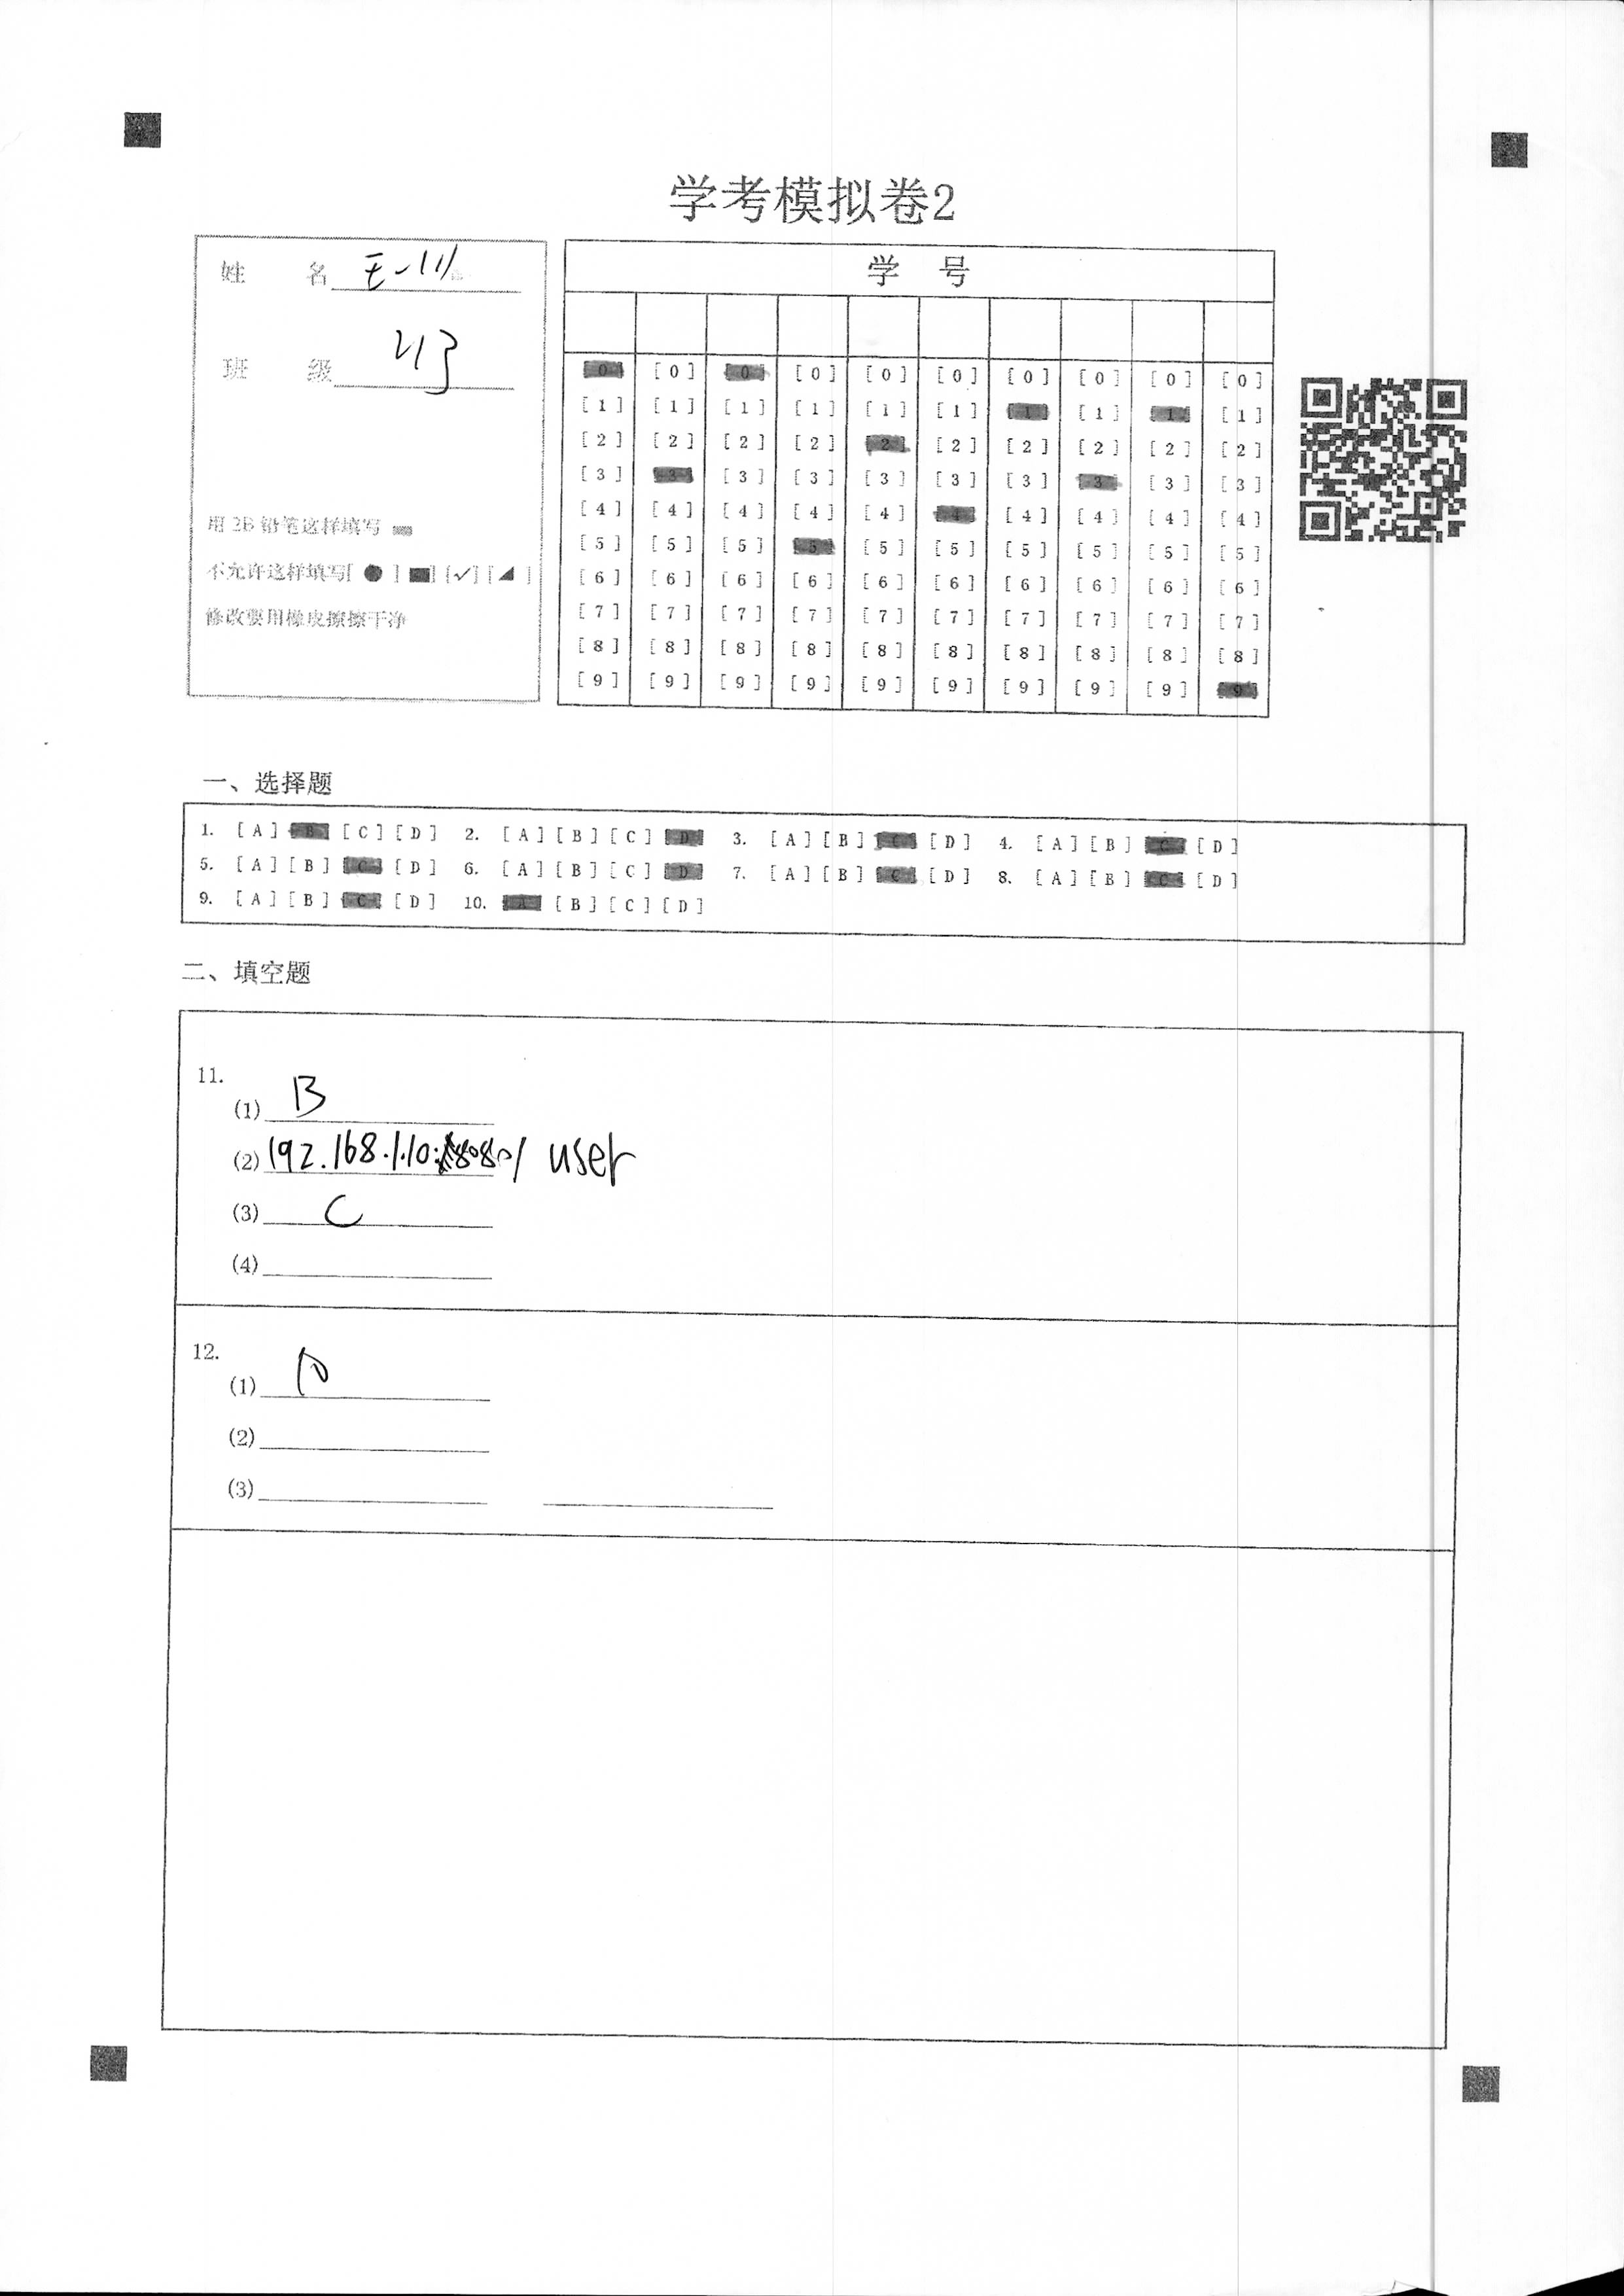 学考模拟卷2
姓 名 王一川
班 级 213
用 2B 铅笔这样填写
不允许这样填写[ ● ] [■] [✓] [◢ ]
修改要用橡皮擦擦干净
学 号
[0] [0] [0] [0] [0] [0] [0] [0] [0] [0]
[1] [1] [1] [1] [1] [1] [1] [1] [1] [1]
[2] [2] [2] [2] [2] [2] [2] [2] [2] [2]
[3] [3] [3] [3] [3] [3] [3] [3] [3] [3]
[4] [4] [4] [4] [4] [4] [4] [4] [4] [4]
[5] [5] [5] [5] [5] [5] [5] [5] [5] [5]
[6] [6] [6] [6] [6] [6] [6] [6] [6] [6]
[7] [7] [7] [7] [7] [7] [7] [7] [7] [7]
[8] [8] [8] [8] [8] [8] [8] [8] [8] [8]
[9] [9] [9] [9] [9] [9] [9] [9] [9] [9]
一、选择题
1. [A] [B] [C] [D] 2. [A] [B] [C] [D] 3. [A] [B] [C] [D] 4. [A] [B] [C] [D]
5. [A] [B] [C] [D] 6. [A] [B] [C] [D] 7. [A] [B] [C] [D] 8. [A] [B] [C] [D]
9. [A] [B] [C] [D] 10. [A] [B] [C] [D]
二、填空题
11.
(1) B
(2) 192.168.1.10:8080/ user
(3) C
(4)
12.
(1)
(2)
(3)